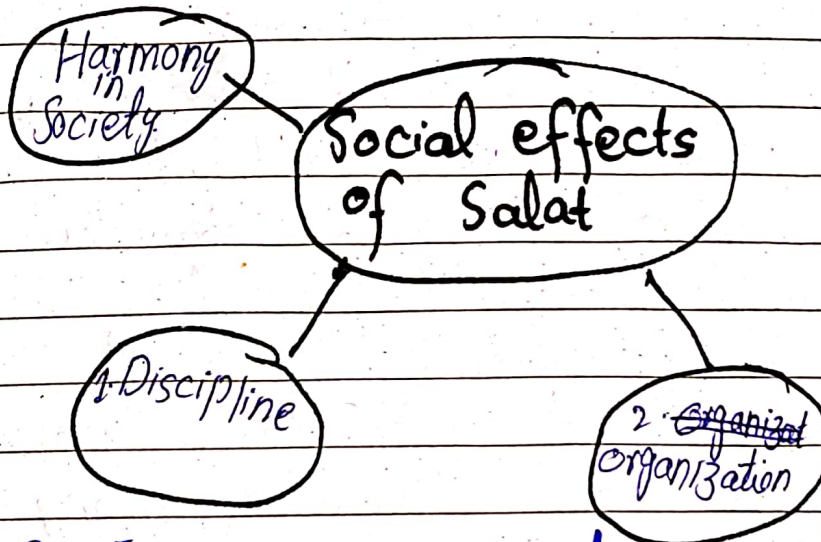 Harmony
in
Society
Social effects
of Salat
1. Discipline
2. organizat
organization